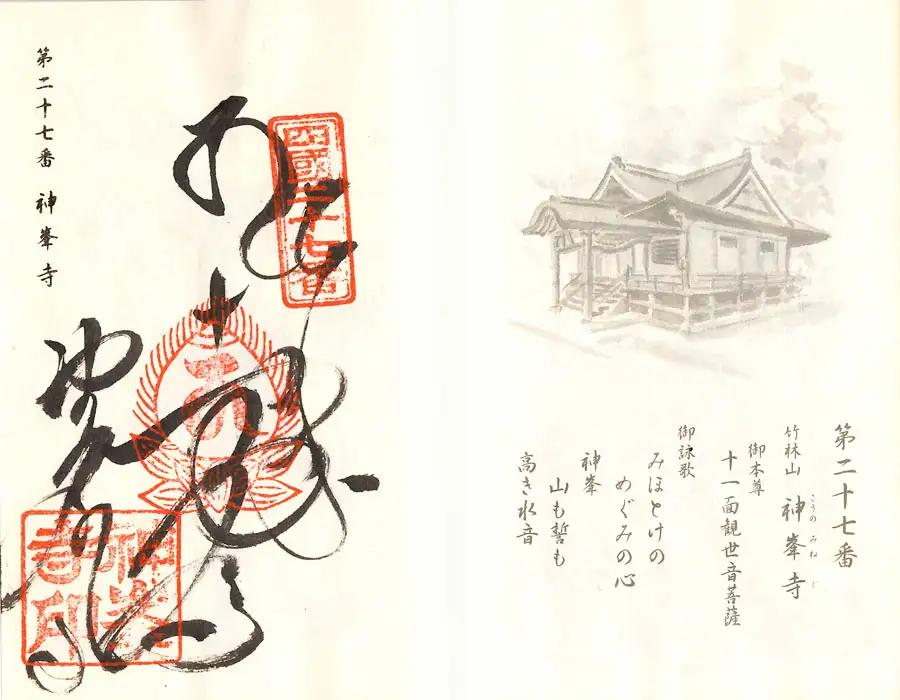 第二十七番
竹林山 神峯寺
こうのみねじ
御本尊
十一面観世音菩薩
御詠歌
みほとけの
めぐみの心
神峯
山も誓も
高き水音
四國二十七番
第二十七番 神峯寺
神峯寺印